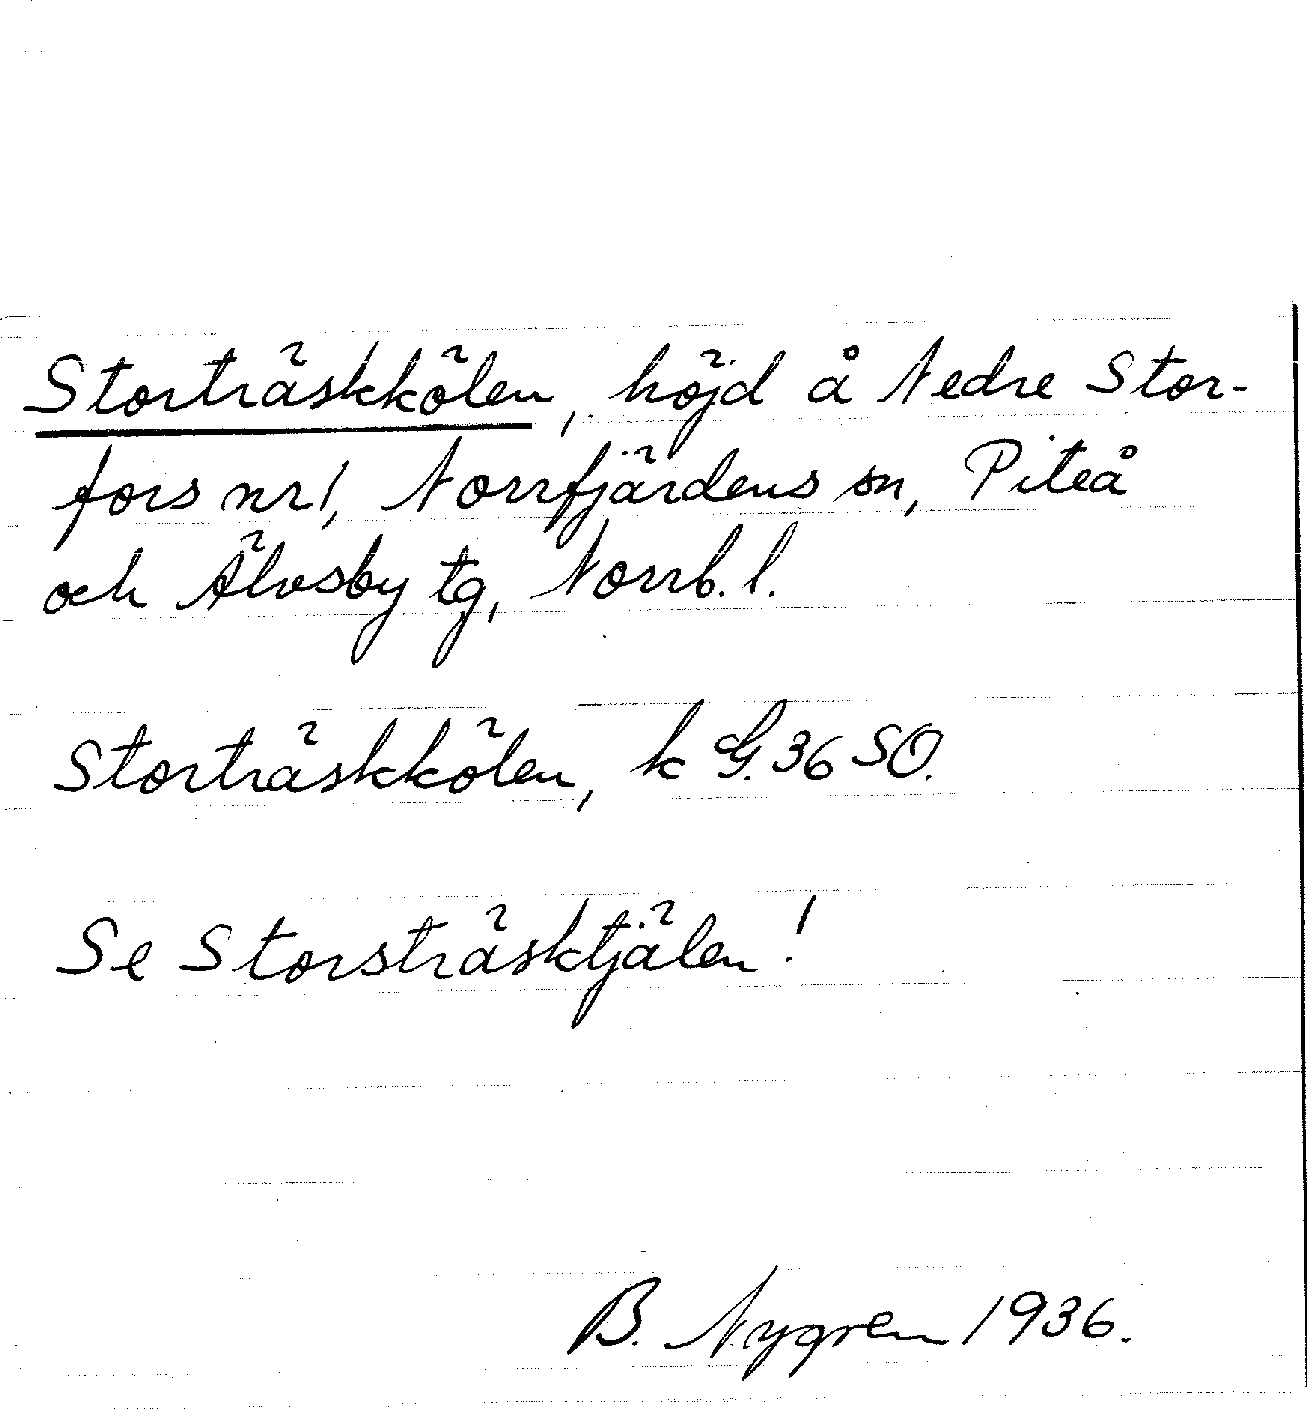 Storträskkölen, höjd å Nedre Stor-
fors nr 1, Norrfjärdens sn, Piteå
och Älvsby tg, Norrb. l.
Storträskkölen, k G. 36 SO.
Se Storsträsktjälen!
B. Nygren 1936.